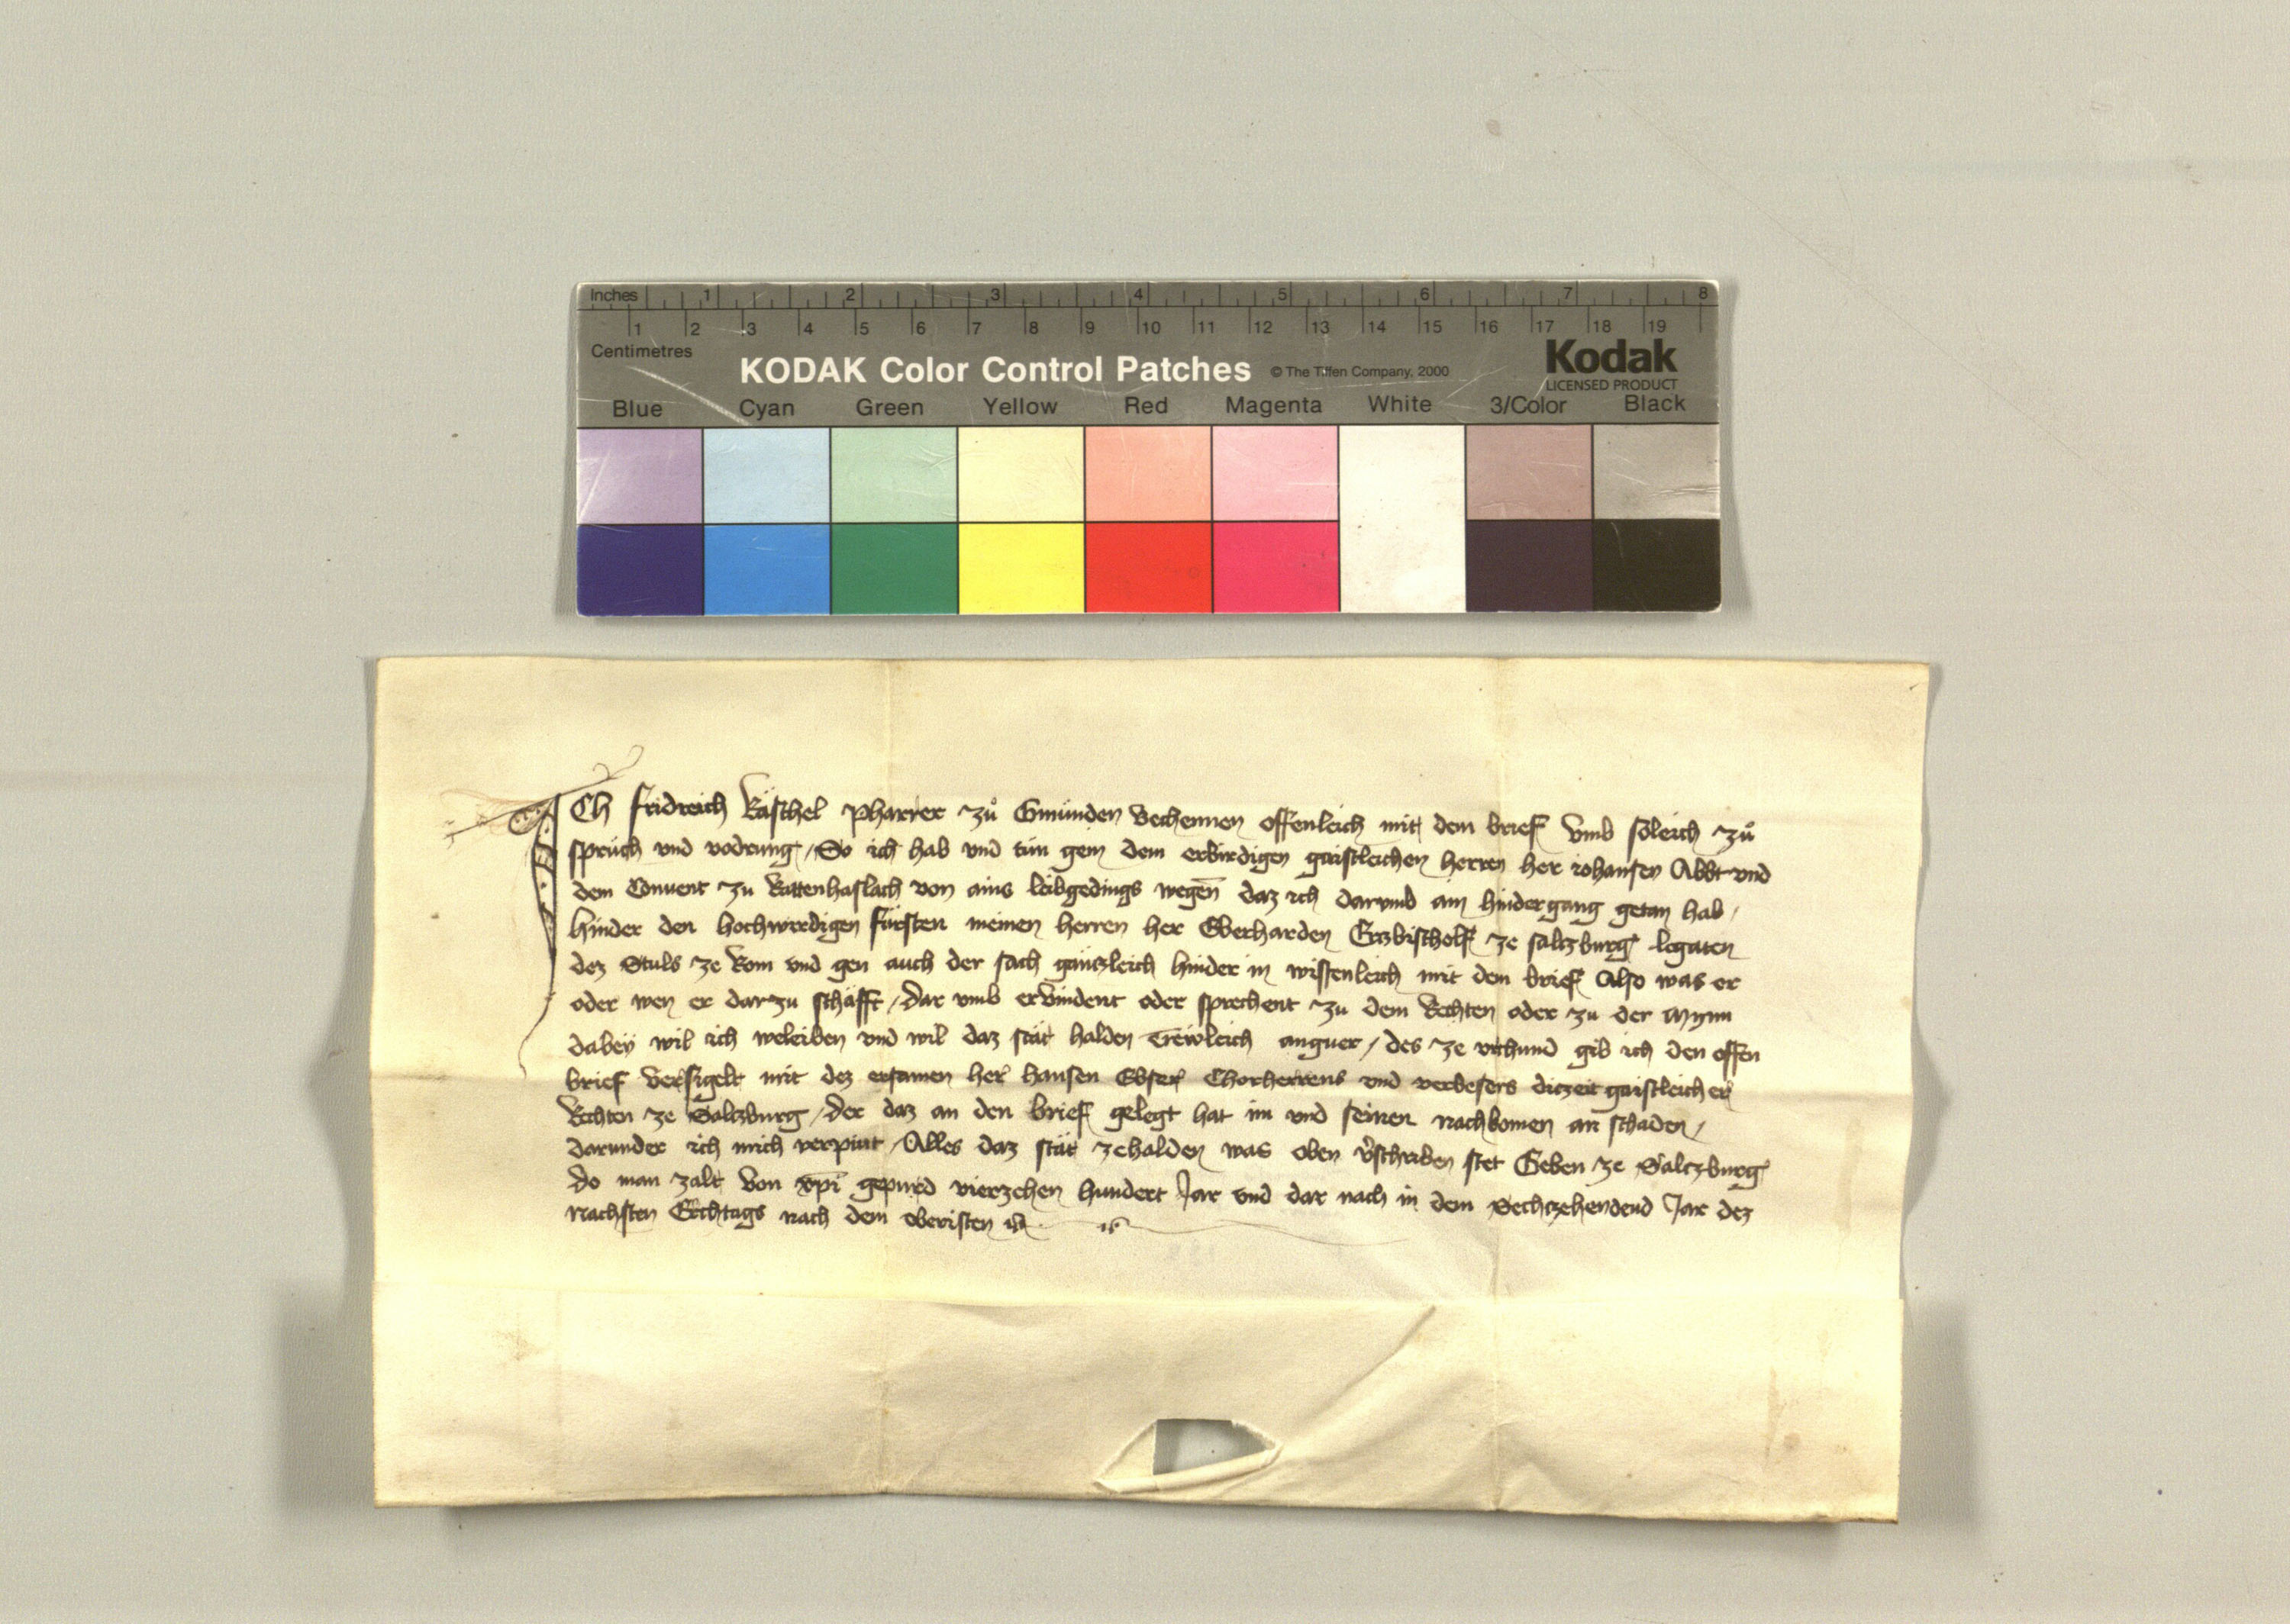 Inches 1 2 3 4 5 6 7 8
1 2 3 4 5 6 7 8 9 10 11 12 13 14 15 16 17 18 19
Centimetres
KODAK Color Control Patches © The Tiffen Company, 2000 Kodak
LICENSED PRODUCT
Blue Cyan Green Yellow Red Magenta White 3/Color Black
ICh fridreich Käschel Pharrer zů Gmünden Bechennen offenleich mit dem brief Umb söleich zů
sprüch vnd vodrung / So ich hab vnd tün gein dem erbirdigen gaistleichen herren her iohansen Abbt vnd
dem Conuent zu Rattenhaslach von ains leibgedings wegen̄ daz ich darumb ain hindergang getan hab /
hinder den hochwirdigen fürsten meinen herren her Eberharden Erczbischolf ze salczburg legaten
dez Stuls ze Rom vnd gen auch der sach gänczleich hinder in wissenleich mit dem brief Also was er
oder wen er darzu schäfft / dar vmb ervindent oder sprechent zu dem Rechten oder zu der Mynn
dabey wil ich weleiben vnd wil daz stät halden Trewleich anguer / des ze vrchund gib ich den offen
brief versigelt mit dez ersamen her hansen Ebser Chorherrens vnd verbesers diczeit gaistleicher
Rechten ze Salczburg / der daz an den brief gelegt hat im vnd seinen nachkomen an schaden /
darunder ich mich verpint / Alles daz stät zehalden was oben v̉schriben stet Geben ze Salczburg
do man zalt Von xp̄i gepurd vierzehen hundert Jar vnd dar nach in dem Sechczehendend Jar dez
nachsten Erchtags nach dem obristen